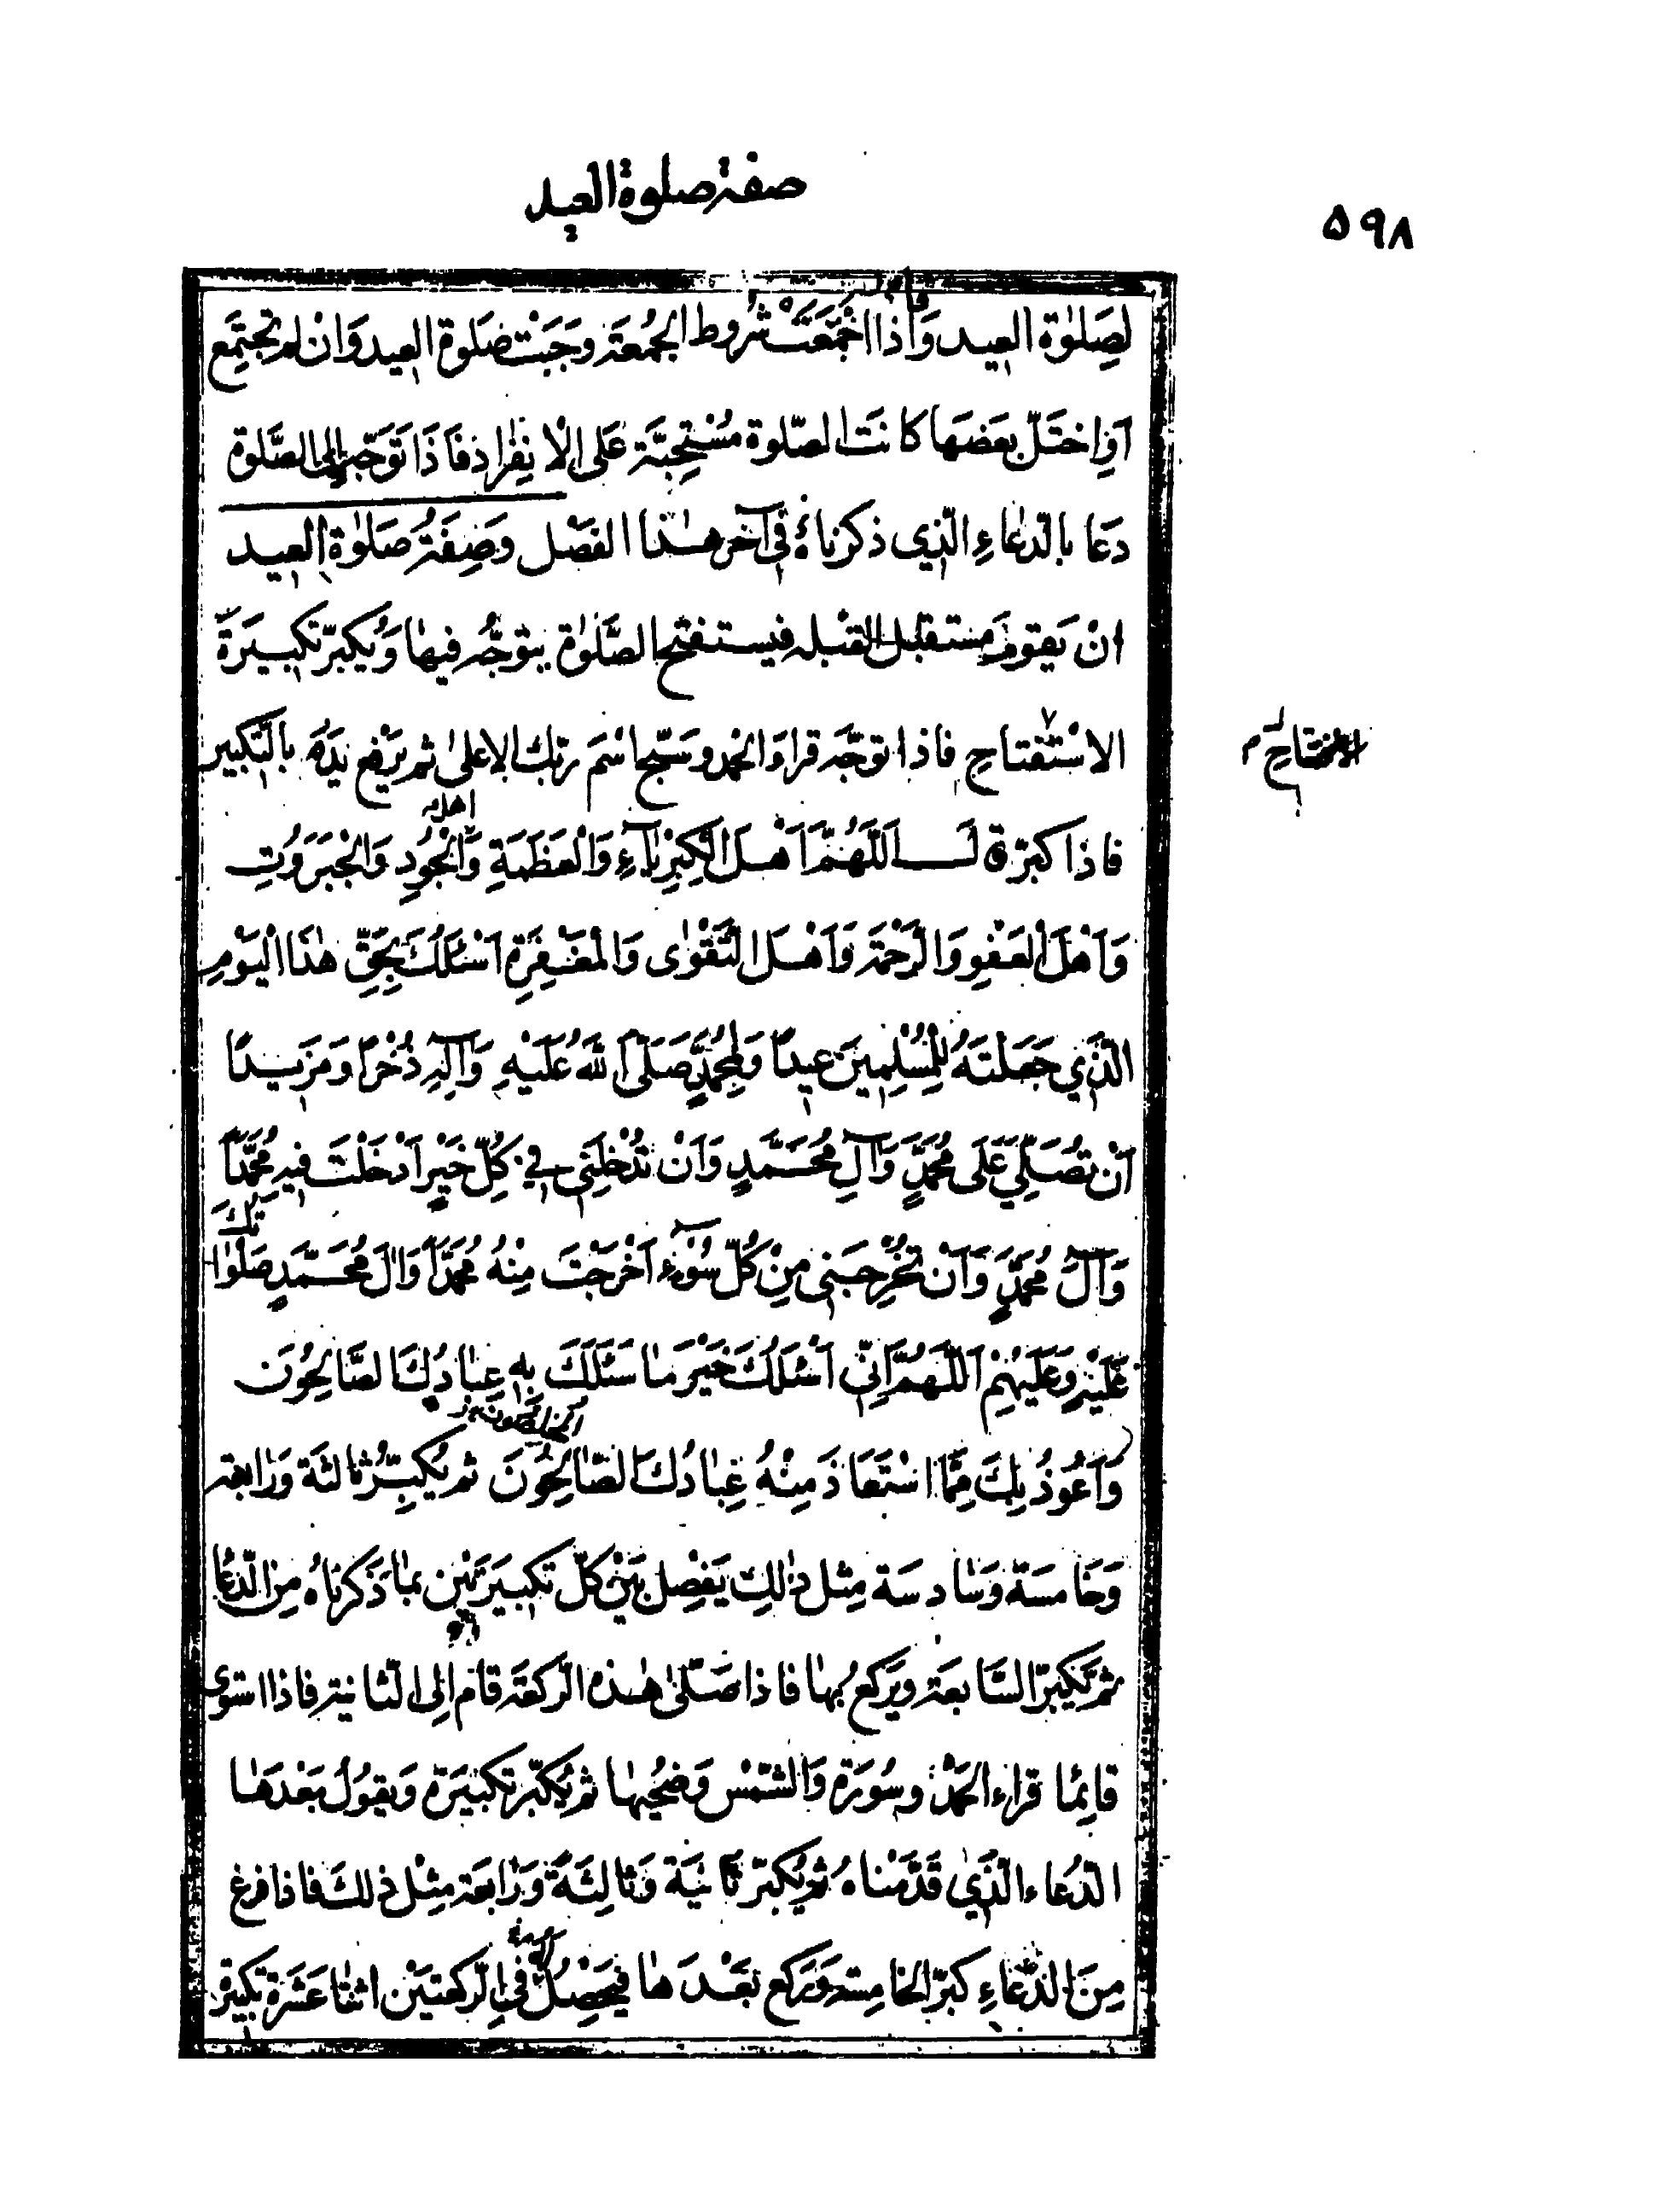 صفة صلوة العيد
۵۹۸
لصَلٰوة العيد وَاذا اجْتَمَعَتْ شُروط الجُمعَة وجَبَتْ صَلوة العيد وَانْ لم تجتَمِع
اَوِاختَلّ بعَضهَا كانَت الصّلوة مُسْتَحِبَّة عَلى الانفِراد فَاذَا تَوَجّه الى الصَّلوة
دَعَا بالدّعاءِ الّذي ذكرناهُ فى آخر هٰذا الفَصْل وَصِفَةُ صَلٰوة العيد
انْ يَقومَ مستقبل القبْله فيستفتح الصَّلَوٰة يتوَجَّه فيهٰا وَيُكبّر تكبيرَةَ
الاسْتفتاحِ فاذا توجَّه قراءَ الحمد وسَبّح اسْمَ ربّك الاعلىٰ ثم يَرْفع يَدَهُ بالتّكبير
الافتتاحِ م
اهل
فاذا كبّرة لَ اَللَّهُمَّ اَهْلَ الكِبْرِيٰاءِ وَالْعظَمَةِ وَالْجُودِ وَالجَبَرَوُتِ
وَاَهْلَ الْعَفوِ وَالرَّحْمَة وَاَهْلَ التَّقْوٰى وَالْمَغْفِرَةِ اَسْئَلُكَ بِحَقِّ هٰذَا الْيَوْمِ
الَّذي جَعَلتَهُ لِلْمُسْلِمينَ عيدًا وَلِمُحَمَّدٍ صَلَّى اللهُ عَلَيْهِ وَآلِهِ ذُخْرًا وَمَزيدًا
اَنْ تُصَلِّيَ عَلَى مُحَمَّدٍ وَآلِ مُحَمَّدٍ وَاَنْ تُدْخِلَني في كُلِّ خَيْرٍ اَدْخَلْتَ فيهِ مُحَمَّدًا
تُكَ
وَآلَ مُحَمَّدٍ وَاَنْ تُخْرِجَنى مِنْ كُلِّ سُوۤءٍ اَخْرَجْتَ مِنْهُ مُحَمَّدًا وَالَ مُحَمَّدٍ صَلَوٰا
عَلَيْهِ وَعَلَيْهِمْ اَللَّهُمَّ اِنّي اَسْئَلُكَ خَيْرَ مٰا سَئَلَكَ بِهِ عِبٰادُكَ الصَّالِحُونَ
وَاَعُوذُ بِكَ مِمَّا اسْتَعَاذَ مِنْهُ عِبٰادُكَ الصّٰالِحُونَ ثم يُكبِّرُ ثالثَة وَرٰابعة
وَخامسَة وَسٰادسَة مِثل ذٰلِك يَفْصِل بَيْن كلّ تكبيرَتَيْن بمٰا ذَكرنٰاهُ مِنَ الدّعٰا
ثم يكبّر السَّابعَة ويَركع بهٰا فاذا صَلّىٰ هٰذه الرّكعَة قام الى الثانية فاذا استوى
قائِمًا قراء الحَمْدُ وسُورَة وَالشّمْس وَضُحٰيهٰا ثم يُكبّر تكبيرَة وَيقوُلُ بَعْدَهٰا
الدّعاء الّذَي قَدَّمْناهُ ثم يُكبّر ثانيَة وَثالِثَةً وَرٰابعَة مِثْل ذلك فاذا فرغ
مِنَ الدّعَاءِ كبّر الخامِسَة وَرَكع بَعْدَهٰا فيَحْصُلُ فى الرّكعتَيْن اثنتٰا عَشَرة تكبيرة